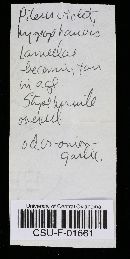 Pileus violet,
hygrophanous
Lamellae
becoming tan
in age
Stipe
overall
odor-onion-
garlic.
University of Central Oklahoma
CSU-F-01661